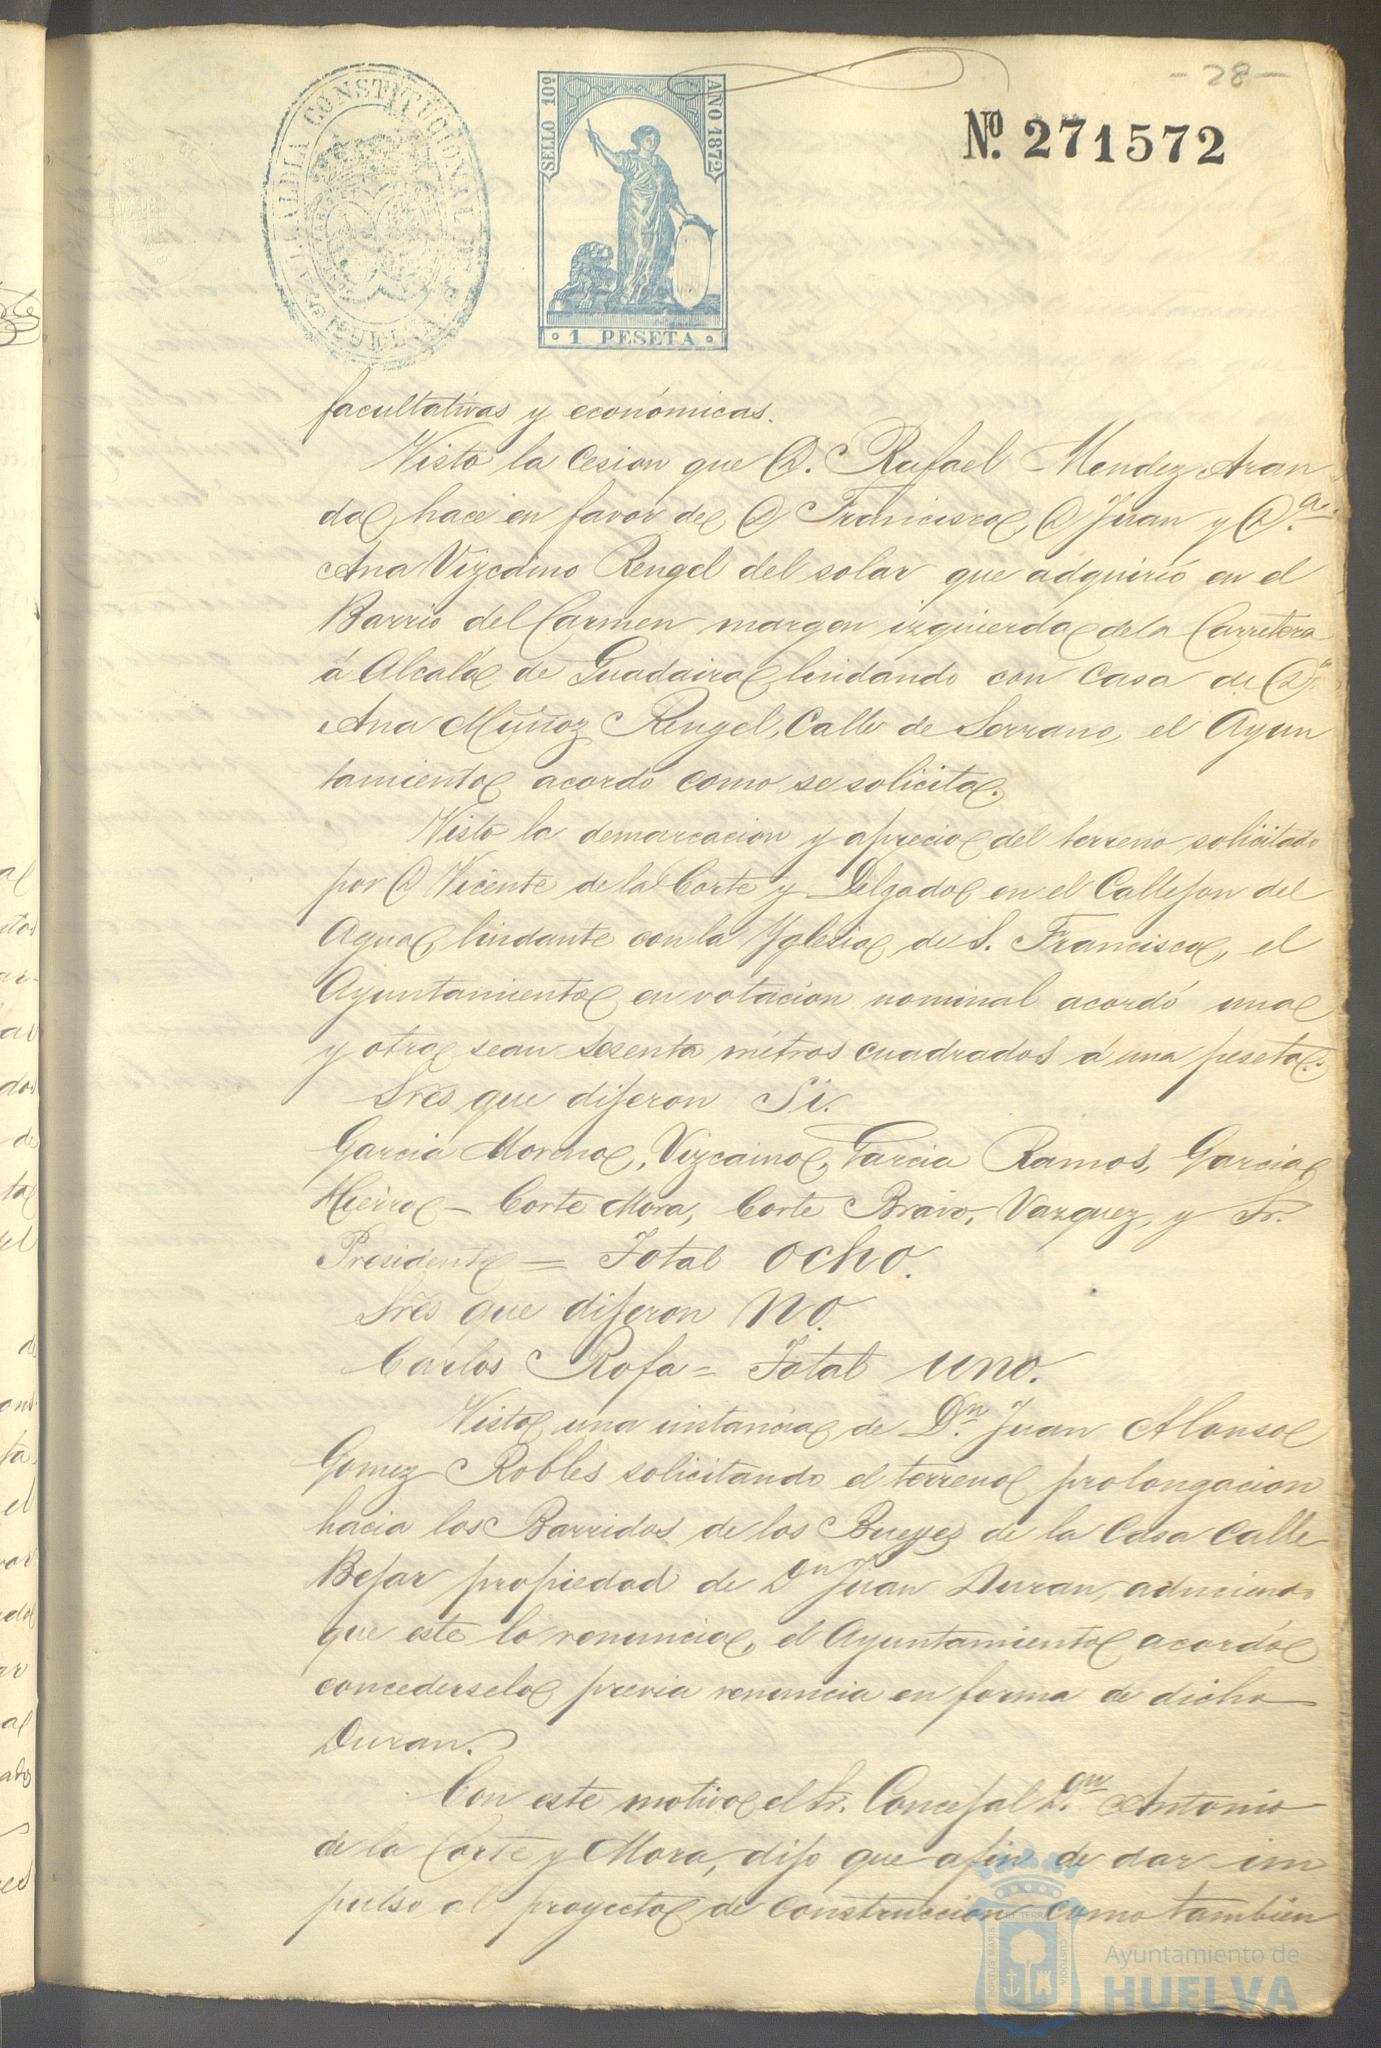 - 28 -
Nº. 271572
ALCALDIA CONSTITUCIONAL DE HUELVA
SELLO 10º
AÑO 1872
1 PESETA
facultativas y económicas.
Visto la Cesion que D. Rafael Mendez Aran
da hace en favor de D Francisco, D Juan y D.ª
Ana Vizcaino Rengel del solar que adquirió en el
Barrio del Carmen margen izquierda de la Carretera
á Alcalá de Guadaira lindando con Casa de Dª
Ana Muñoz Rengel, Calle de Serrano, el Ayun
tamiento acordó como se solicita.
Visto la demarcacion y aprecio del terreno solicitado
por D Vicente de la Corte y Delgado en el Callejon del
Agua, lindante con la Yglesia de S. Francisco, el
Ayuntamiento en votacion nominal acordó una
y otra sean sesenta métros cuadrados á una peseta.
Sres que dijeron Si.
Garcia Moreno, Vizcaino, Garcia Ramos, Garcia
Hierro - Corte Mora, Corte Bravo, Vazquez, y Sr.
Presidente = Total ocho.
Sres que dijeron No.
Carlos Rofa = Total uno.
Visto una instancia de Dn. Juan Alonso
Gomez Robles solicitando el terreno prolongacion
hacia los Barridos de los Bueyes de la Casa Calle
Bejar propiedad de Dn Juan Duran, aduciendo
que este lo renuncia, el Ayuntamiento acordó
concederselo previa renuncia en forma de dicho
Duran.
Con este motivo el Sr. Concejal Dn. Antonio
de la Corte y Mora, dijo que afin de dar im
pulso al proyecto de construccion como tambien
Ayuntamiento de
HUELVA